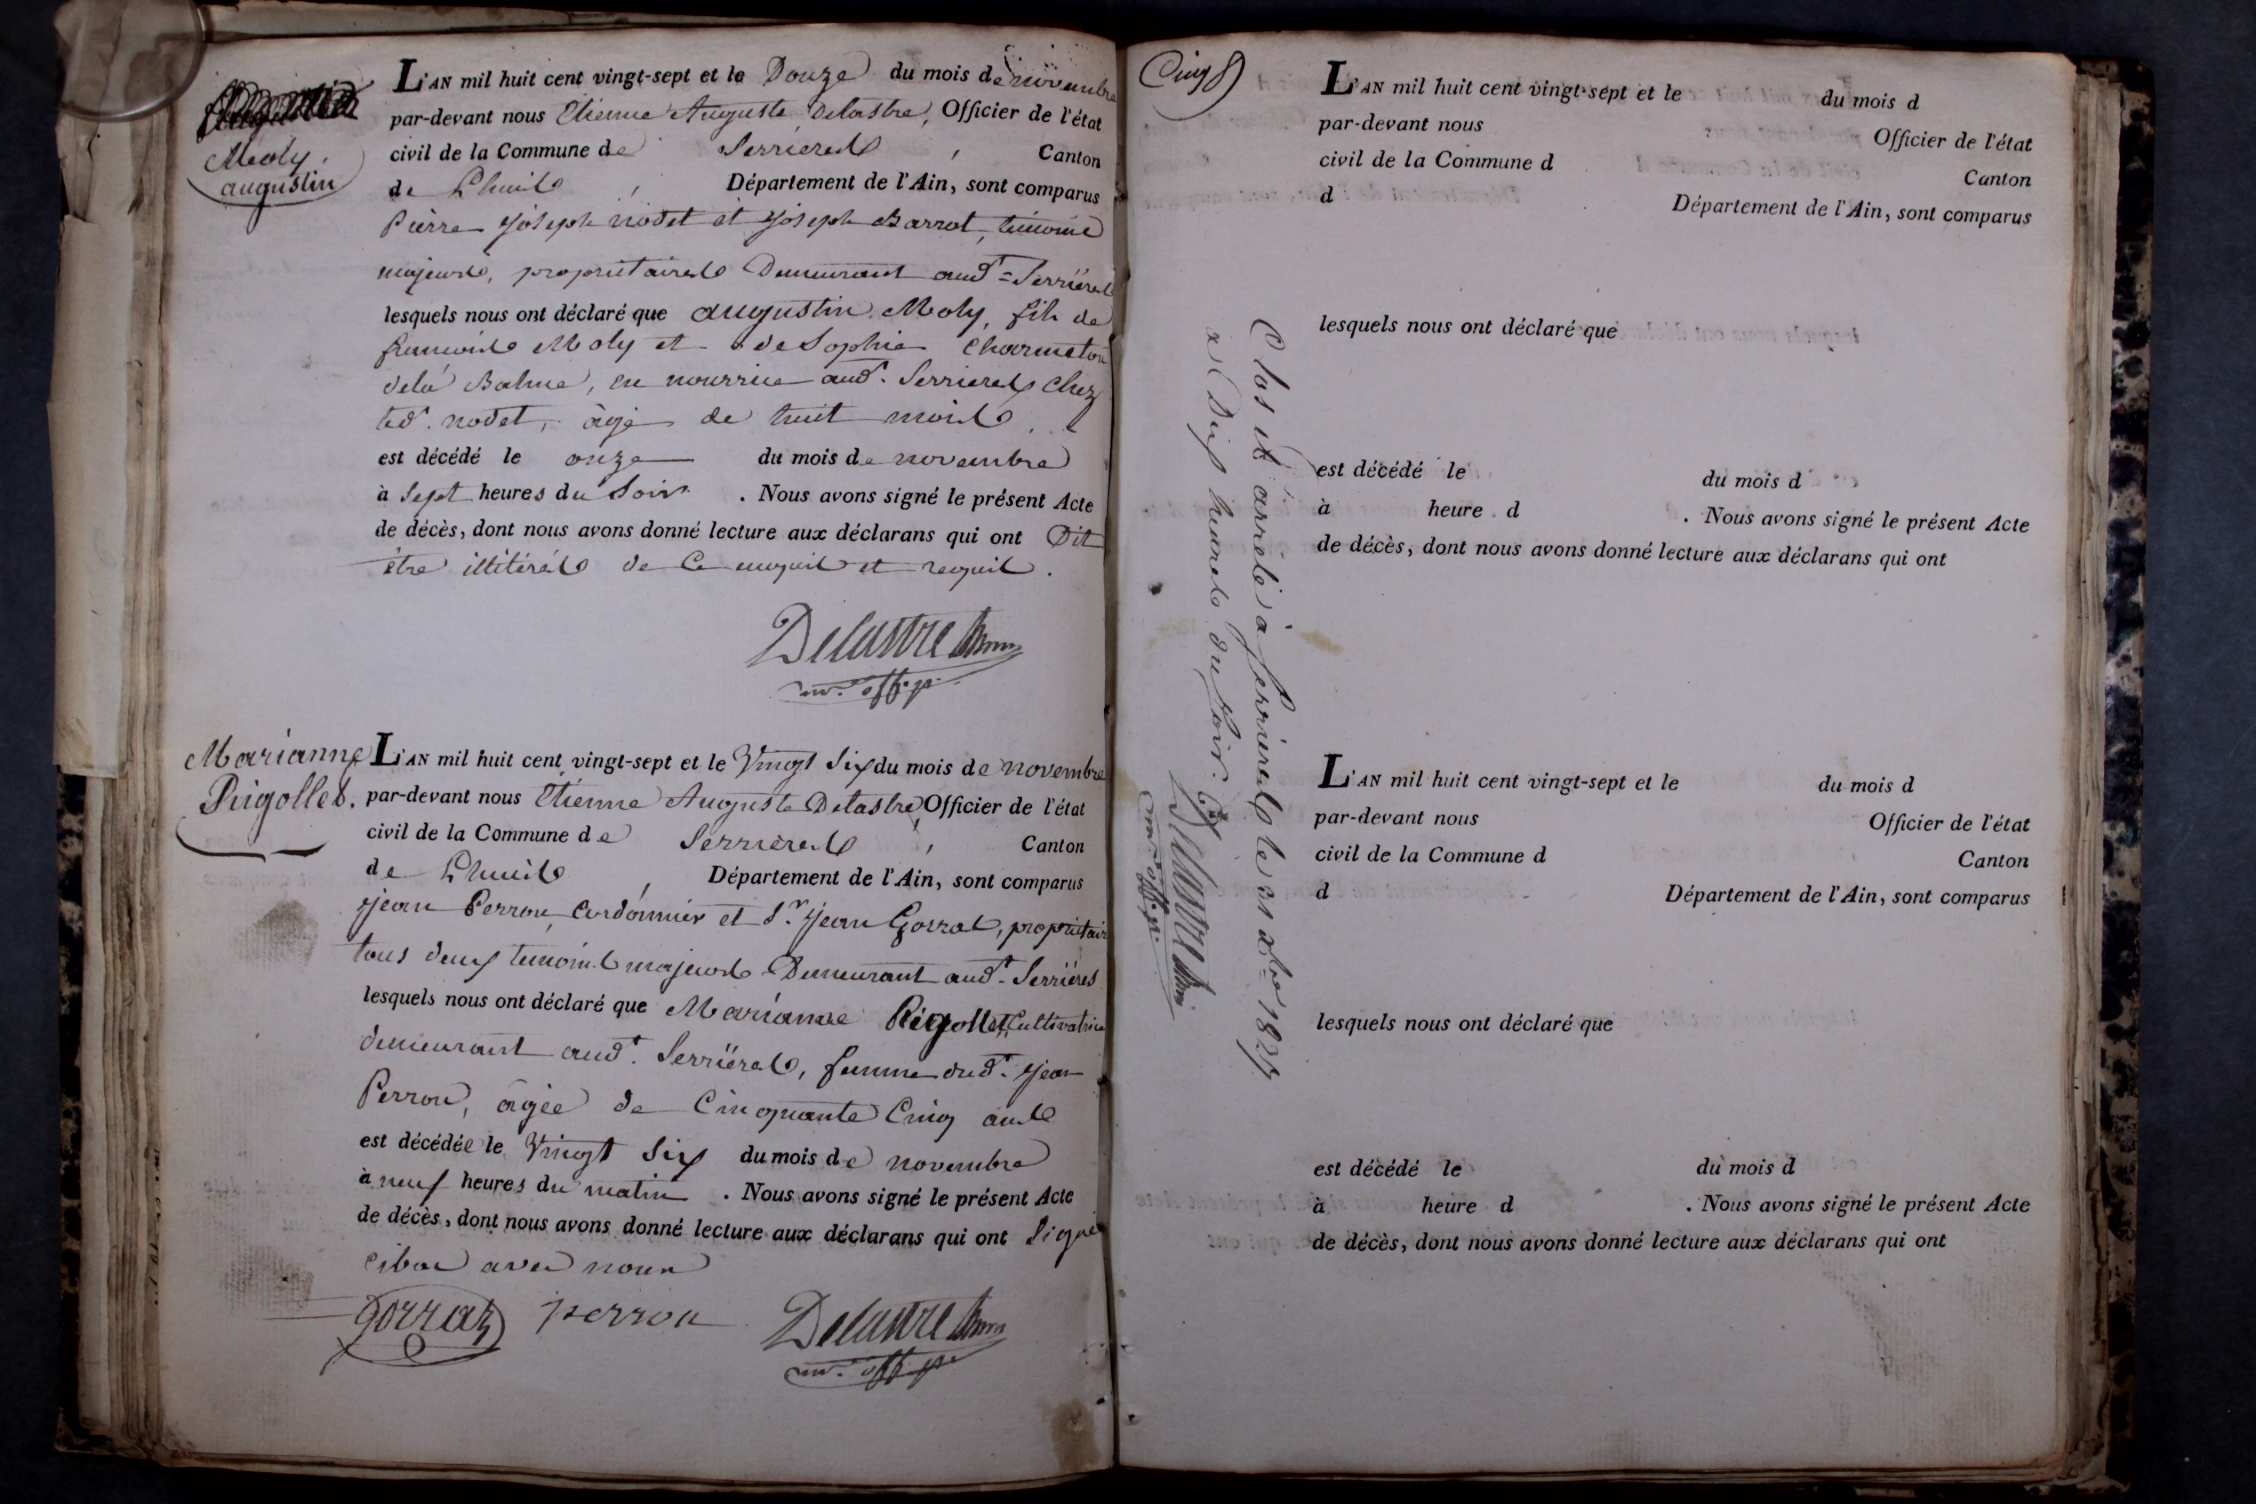 Moly
augustin
L'AN mil huit cent vingt-sept et le Douze du mois de novembre
par-devant nous Etienne Auguste Delastre, Officier de l'état
civil de la Commune de Serrieres, Canton
de Lhuis, Département de l'Ain, sont comparus
Pierre joseph nodet et joseph Barrot, témoins
majeurs, propriétaires Demeurant aud.t Serrières
lesquels nous ont déclaré que augustin Moly, fils de
françois Moly et de Sophie Charmeton
dela Balme, en nourrice aud.t Serrieres chez
led.t nodet, âgé de huit mois
est décédé le onze du mois de novembre
à Sept heures du Soir. Nous avons signé le présent Acte
de décès, dont nous avons donné lecture aux déclarans qui ont Dit
être illitérés de ce enquis et requis.
Delastre
off. p.
Marianne
Rigollet.
L'AN mil huit cent vingt-sept et le Vingt Six du mois de novembre
par-devant nous Etienne Auguste Delastre, Officier de l'état
civil de la Commune de Serrières, Canton
de Lhuis, Département de l'Ain, sont comparus
jean Perron, Cordonnier et S.r jean Gorrat, propriétaire
tous deux témoins majeurs Demeurant aud.t Serrières
lesquels nous ont déclaré que Marianne Rigollet, Cultivatrice
demeurant aud.t Serrières, femme dud.t jean
Perron, âgée de Cinquante Cinq ans
est décédée le Vingt Six du mois de novembre
à neuf heures du matin. Nous avons signé le présent Acte
de décès, dont nous avons donné lecture aux déclarans qui ont Signé
cibas avec nous
gorrat perron Delastre
off. p.
L'AN mil huit cent vingt-sept et le du mois d
par-devant nous Officier de l'état
civil de la Commune d Canton
d Département de l'Ain, sont comparus
lesquels nous ont déclaré que
est décédé le du mois d
à heure d . Nous avons signé le présent Acte
de décès, dont nous avons donné lecture aux déclarans qui ont
L'AN mil huit cent vingt-sept et le du mois d
par-devant nous Officier de l'état
civil de la Commune d Canton
d Département de l'Ain, sont comparus
lesquels nous ont déclaré que
est décédé le du mois d
à heure d . Nous avons signé le présent Acte
de décès, dont nous avons donné lecture aux déclarans qui ont
Clos et arrêté à Serrieres le 31 Xbre 1827
à Dix heures du Soir.
Delastre
off. p.